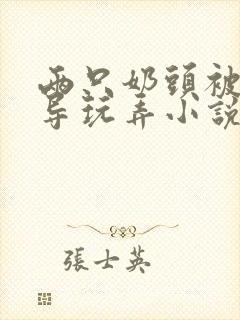 两只奶頭被
导玩弄小説
張士英